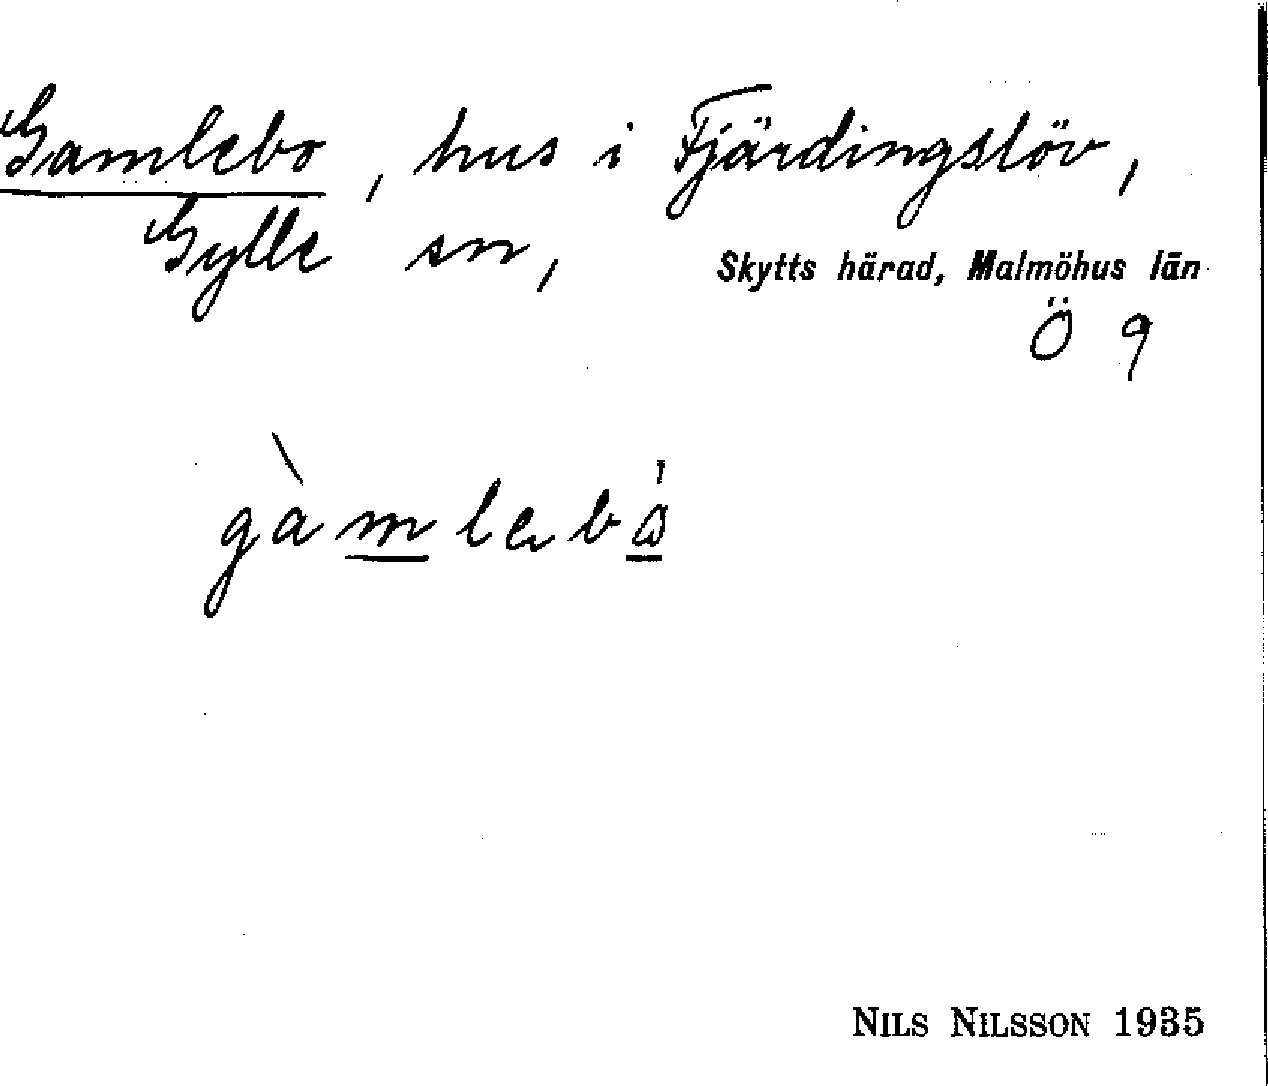 Gamlebo, hus i Fjärdingslöv,
Gylle sn, Skytts härad, Malmöhus län
Ö 9
gàmlebo
NILS NILSSON 1935